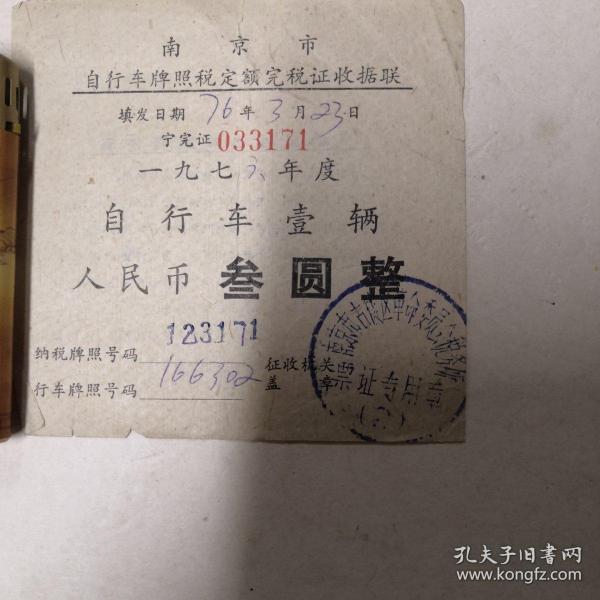 南京市
自行车牌照税定额完税证收据联
填发日期 76年3月23日
宁完证 033171
一九七六年度
自行车壹辆
人民币 叁圆整
纳税牌照号码 123171
行车牌照号码 166302
征收机关
盖章
孔夫子旧书网
www.kongfz.com